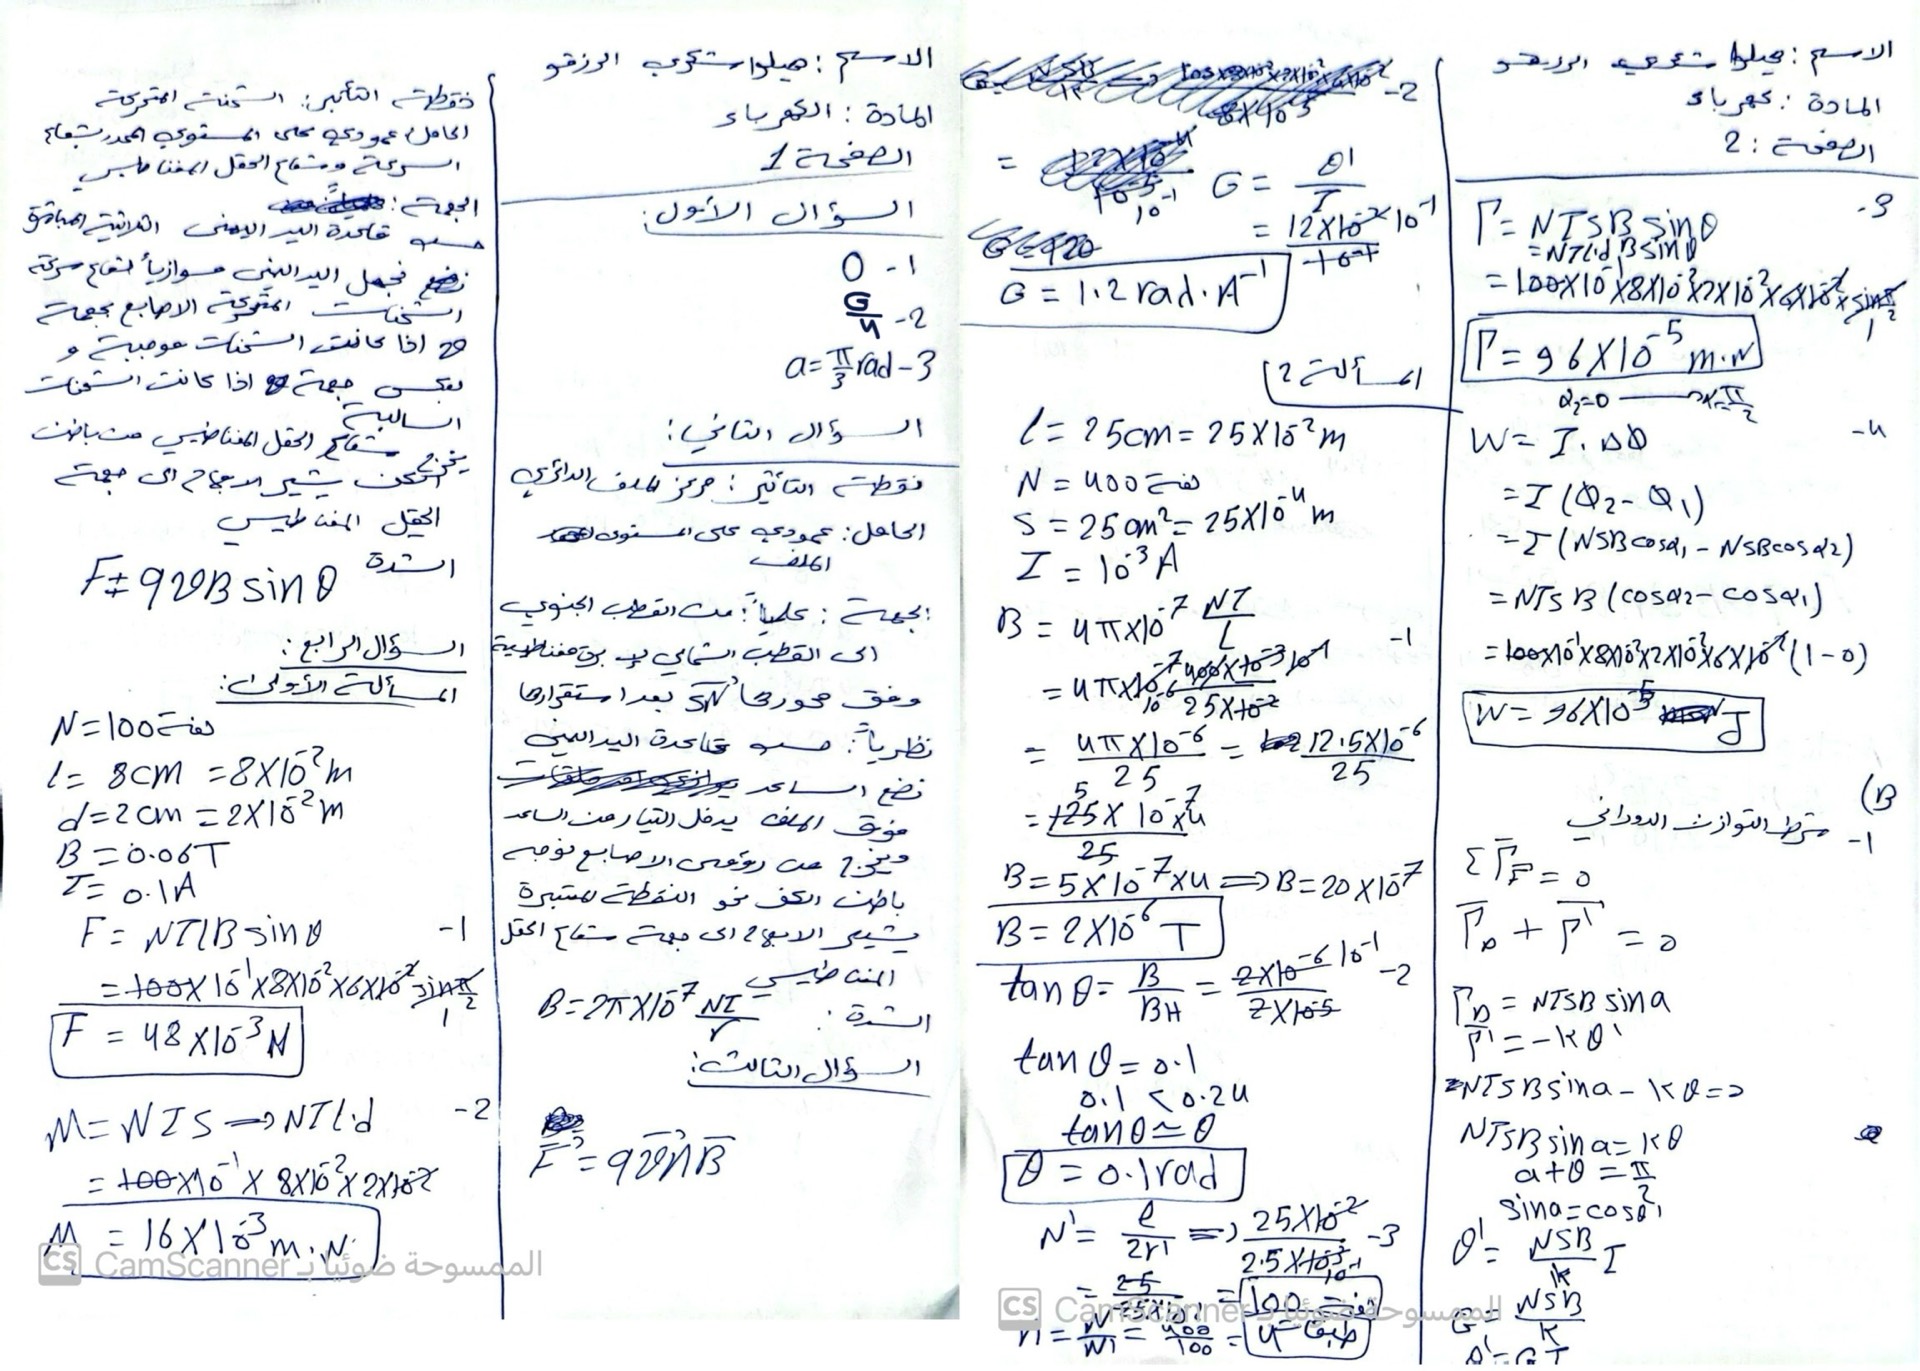 الاسم : هيلوا شكري الرزقو
المادة : الكهرباء
الصفحة 1
السؤال الأول :
1- 0
2- G/4
3- a = π/3 rad
السؤال الثاني :
نقطة التأثير : مركز الملف الدائري
الحامل : عمودي على المستوي
الملف
الجهة : عملياً : من القطب الجنوبي
الى القطب الشمالي لإبرة مغناطيسية
وفق محورها بعد استقرارها
نظرياً : حسب قاعدة اليد اليمنى
نضع الساعد
فوق الملف يدخل التيار من الساعد
ويخرج من رؤوس الاصابع نوجه
باطن الكف نحو النقطة المعتبرة
يشير الابهام الى جهة شعاع الحقل
المغناطيسي
الشدة : B = 2π×10⁻⁷ NI/r
السؤال الثالث :
F = qv∧B
نقطة التأثير : الشحنة المتحركة
الحامل : عمودي على المستوي المحدد بشعاع
السرعة وشعاع الحقل المغناطيسي
الجهة :
حسب قاعدة اليد اليمنى الثلاثية
نضع نجعل اليد اليمنى موازياً لشعاع سرعة
الشحنات المتحركة الاصابع بجهة
v اذا كانت الشحنات موجبة و
بعكس جهة v اذا كانت الشحنات
السالبة
يخرج شعاع الحقل المغناطيسي من باطن
الكف يشير الابهام الى جهة
الحقل المغناطيسي
الشدة F = qvB sin θ
السؤال الرابع :
المسألة الأولى :
N = 100 لفة
l = 8cm = 8×10⁻²m
d = 2cm = 2×10⁻²m
B = 0.06T
I = 0.1A
1- F = NIlB sin θ
= 100×10⁻¹×8×10⁻²×6×10⁻² sin π/2
1
F = 48×10⁻³ N
2- M = NIS ⇒ NIl·d
= 100×10⁻¹×8×10⁻²×2×10⁻²
M = 16×10⁻³ m.N
الاسم : هيلوا شكري الرزقو
المادة : كهرباء
الصفحة : 2
3- Γ = NISB sin θ
= NIl.d B sin θ
= 100×10⁻¹×8×10⁻²×2×10⁻²×6×10⁻²× sin π/2
1
Γ = 96×10⁻⁵ m.N
α₂=0 → α₁=π/2
4- W = I.ΔΦ
= I(Φ₂-Φ₁)
= I(NSB cosα₁ - NSB cosα₂)
= NISB(cosα₂ - cosα₁)
= 100×10⁻¹×8×10⁻²×2×10⁻²×6×10⁻²(1-0)
W = 96×10⁻⁵ J
B)
1- شرط التوازن الدوراني
ΣΓF = 0
ΓΔ + Γ' = 0
ΓΔ = NISB sin a
Γ' = -kθ'
NISB sin a - kθ = 0
NISB sin a = kθ
a+θ = π/2
sin a = cos θ'
θ' = NSB/k I
G = NSB/k
θ' = GI
2-
G = θ'/I
= 12×10⁻² 10⁻¹ / 10⁻¹
G = 1.2 rad.A⁻¹
المسألة 2
l = 25cm = 25×10⁻²m
N = 400 لفة
S = 25cm² = 25×10⁻⁴m
I = 10⁻³A
1- B = 4π×10⁻⁷ NI/L
= 4π×10⁻⁷ 400×10⁻³ 10⁻¹ / 25×10⁻²
10⁻⁶
= 4π×10⁻⁶/25 = 12.5×10⁻⁶/25
= 125×10⁻⁷×4/25
5
B = 5×10⁻⁷×4 ⇒ B = 20×10⁻⁷
B = 2×10⁻⁶ T
2- tan θ = B/BH = 2×10⁻⁶ 10⁻¹ / 2×10⁻⁵
tan θ = 0.1
0.1 < 0.24
tan θ ≃ θ
θ = 0.1 rad
3- N' = l/2r' ⇒ 25×10⁻²/2.5×10⁻³
10⁻¹
= 25/25×10⁻¹ = 100 لفة
n = N/N' = 400/100 = 4 طبقات
CS CamScanner الممسوحة ضوئيا بـ
CS CamScanner الممسوحة ضوئيا بـ